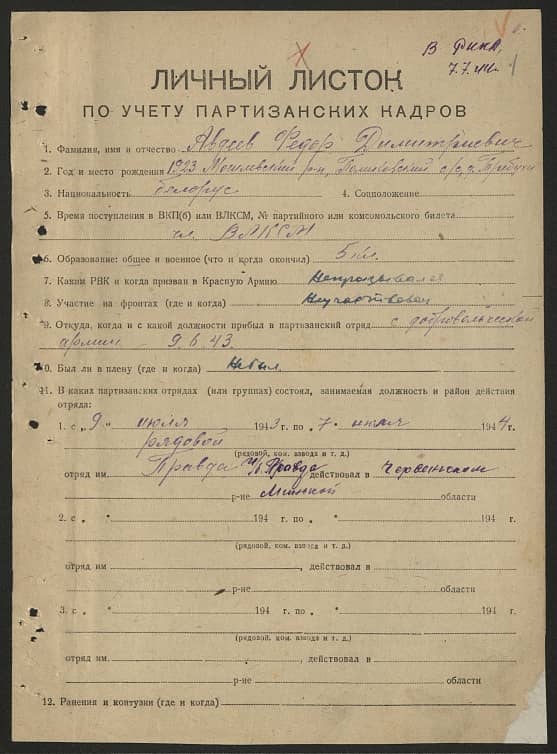 В РККА
7.7.44г. 1
ЛИЧНЫЙ ЛИСТОК
ПО УЧЕТУ ПАРТИЗАНСКИХ КАДРОВ
1. Фамилия, имя и отчество Авдеев Федор Димитриевич
2. Год и место рождения 1923 Могилевский р-н, Полыковский с/с, д. Требухи
3. Национальность белорус 4. Соцположение
5. Время поступления в ВКП(б) или ВЛКСМ, № партийного или комсомольского билета
чл. ВЛКСМ
6. Образование: общее и военное (что и когда окончил) 5 кл.
7. Каким РВК и когда призван в Красную Армию Непризывался
8. Участие на фронтах (где и когда) Неучаствовал
9. Откуда, когда и с какой должности прибыл в партизанский отряд с добровольческой
армии 9.6.43.
10. Был ли в плену (где и когда) Небыл.
11. В каких партизанских отрядах (или группах) состоял, занимаемая должность и район действия
отряда:
1. с „9" июля 1943 г. по „7" июля 1944 г.
рядовой
(рядовой, ком. взвода и т. д.)
отряд им. Правда п/б Правда действовал в Червенском
р-не Минской области
2. с „ " 194 г. по „ " 194 г.
(рядовой, ком. взвода и т. д.)
отряд им. , действовал в
р-не области
3. с „ " 194 г. по „ " 194 г.
(рядовой, ком. взвода и т. д.)
отряд им. , действовал в
р-не области
12. Ранения и контузии (где и когда)